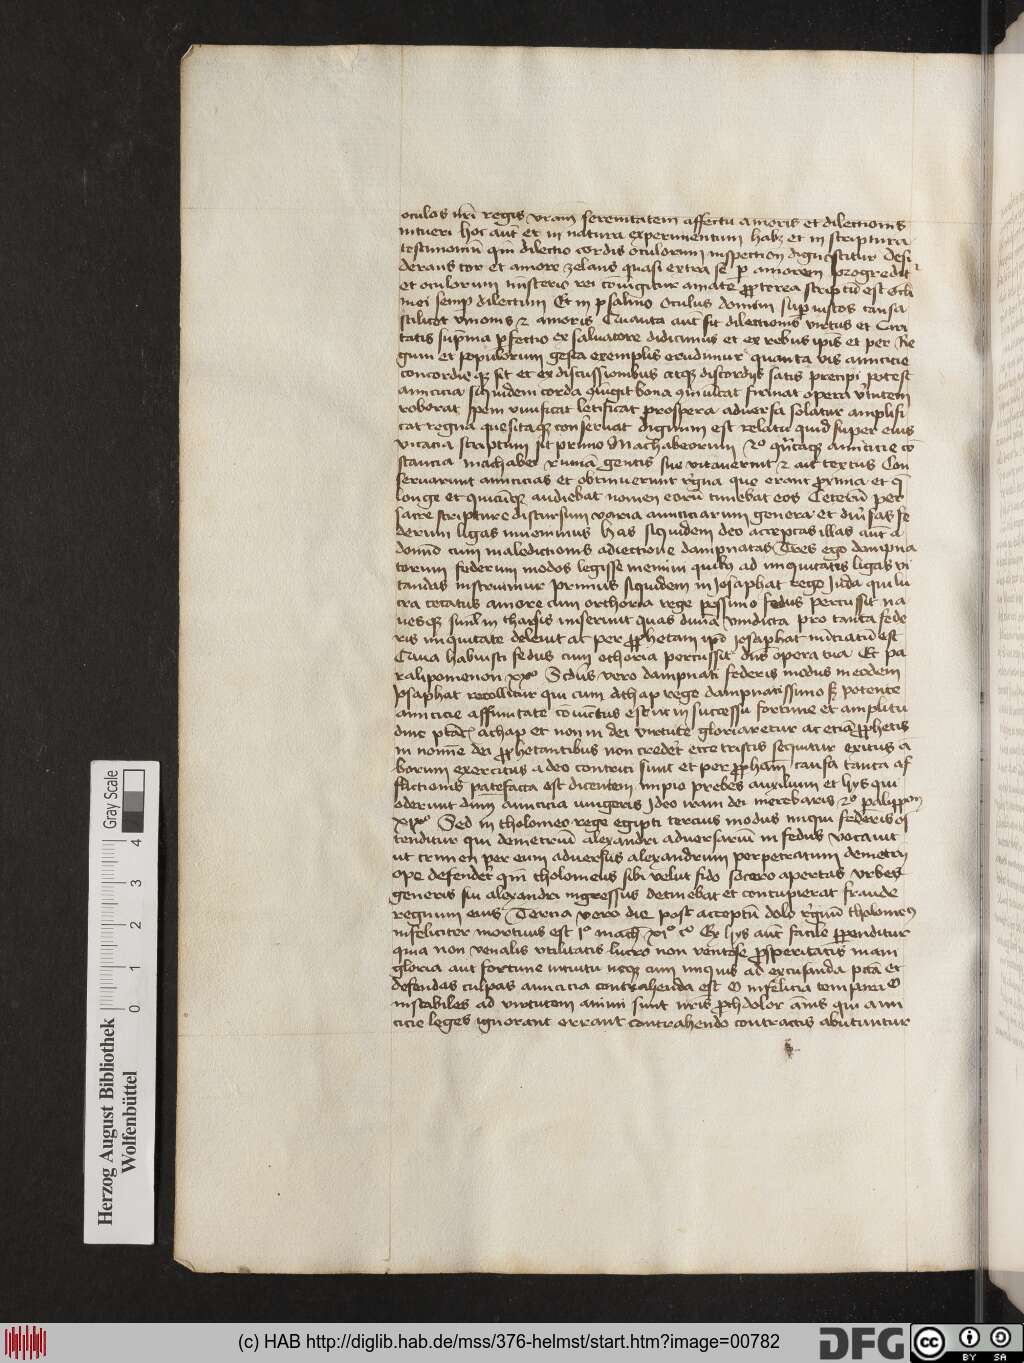 oculos nrī regis vram serenitatem affectu amoris et dilectionis
intueri hoc aut et in natura experimentum habꝫ et in scriptura
testimoniū qm̄ dilectio cordis oculorum inspectiōn dignoscitur Desi
derans cor et amore zelans quasi extra se p amorem progredit᷑
et oculorum misterio rei coniūgitur amate ꝓpterea scriptū est Ocli
mei semp dilectum Et in psalmo Oculus domini sup iustos causa
scilicet vnionis ⁊ amoris Quanta aut sit dilectionis virtus et Cari
tatis sup̄ma pfectio ex saluatore didicimus et ex rebus ipīs et per Re
gum et populorum gesta exemplis erudimur quanta vis amicicie
concordieqꝫ sit et ex discussionibus atqꝫ discordijs satis precipi potest
amicicia siquidem corda cōiūgit bona multiplicat firmat opera v̄tutem
roborat spem viuificat letificat prospera aduersa solatur amplifi
cat regna quesitaqꝫ conseruat dignum est relatu quid super eius
vicacia scriptum sit primo Machabeorum
stancia machabei Rumā gentis sue vitauerunt ⁊ ait textus Con
seruarunt amicicias et obtinuerunt rēgna que erant prima et q̄
longe et quicūqꝫ audiebat nomen eorū timebat eos Ceterū per
sacre scripture discursum varia amiciciarum genera et diūsas fe
derum ligas inuenimus has siquidem deo acceptas illas aut a
domīo cum maledictionis adiectione dampnatas Tres ergo dampna
torum federum modos legisse memini quibꝫ ad iniquitatis ligas vi
tandas instruimur Primus siquidem in Josaphat rege Juda qui lu
cra cecatus amore cum orthoria rege pessimo fedus percussit na
uesqꝫ simul in tharsis inserunt quas diuīa vindicta pro tanta fede
ris iniquitate deleuit ac per ꝓphetam ipī Josaphat nūtciatū est
Quia habuisti fedus cum othoria percussit dns opera tua Et pa
ralipomenon xxº Scdūs vero dampnati federis modus in eodem
Josaphat recollitur qui cum Athap rege dampnatissimo sꝫ potente
amicicie affinitate cōiūctus est ut in successu fortune et amplitu
dine ptātꝭ athap et non in dei virtute gloriaretur ac etiā ꝓphetis
in nomīe dei ꝓphetantibus non credēt ecce tristis sequitur exitus a
borum exercitus a deo contriti sunt et per ꝓpham causa tanta af
flictionis patefacta est dicentem impio prebes auxilium et hys qui
oderunt dūm amicicia iungeris Jdeo iram dei merebaris 2º palippm
xixº Sed in tholomeo rege egipti tercius modus iniqui federis os
tenditur qui demetrium alexandri aduersarium in fedus vocauit
ut crimen per eum aduersus alexandrum perpetratum demetrij
ope defendēt qm̄ tholomeus sibi velut fido socero apertas vrbes
generis sui alexandri ingressus detinebat et concupierat fraude
regnum eius Tercia vero die post acceptū dolo rēgnū tholomeꝰ
infeliciter mortuus est Iº mach xiº cº Ex hys aut facile ꝑpenditur
quia non venalis vtilitatis lucro non ventose prosperitatis inani
gloria aut fortune intuitu neqꝫ cum iniquis ad excusanda pctā et
defendas culpas amicicia contrahenda est O infelicia tempora O
instabiles ad virtutem animi sunt nrīs ꝓchdolor āmis qui ami
cicie leges ignorant errant contrahendo contractis abutuntur
Herzog August Bibliothek
Wolfenbüttel
0 1 2 3 4
Gray Scale
(c) HAB http://diglib.hab.de/mss/376-helmst/start.htm?image=00782
DFG
cc
BY SA